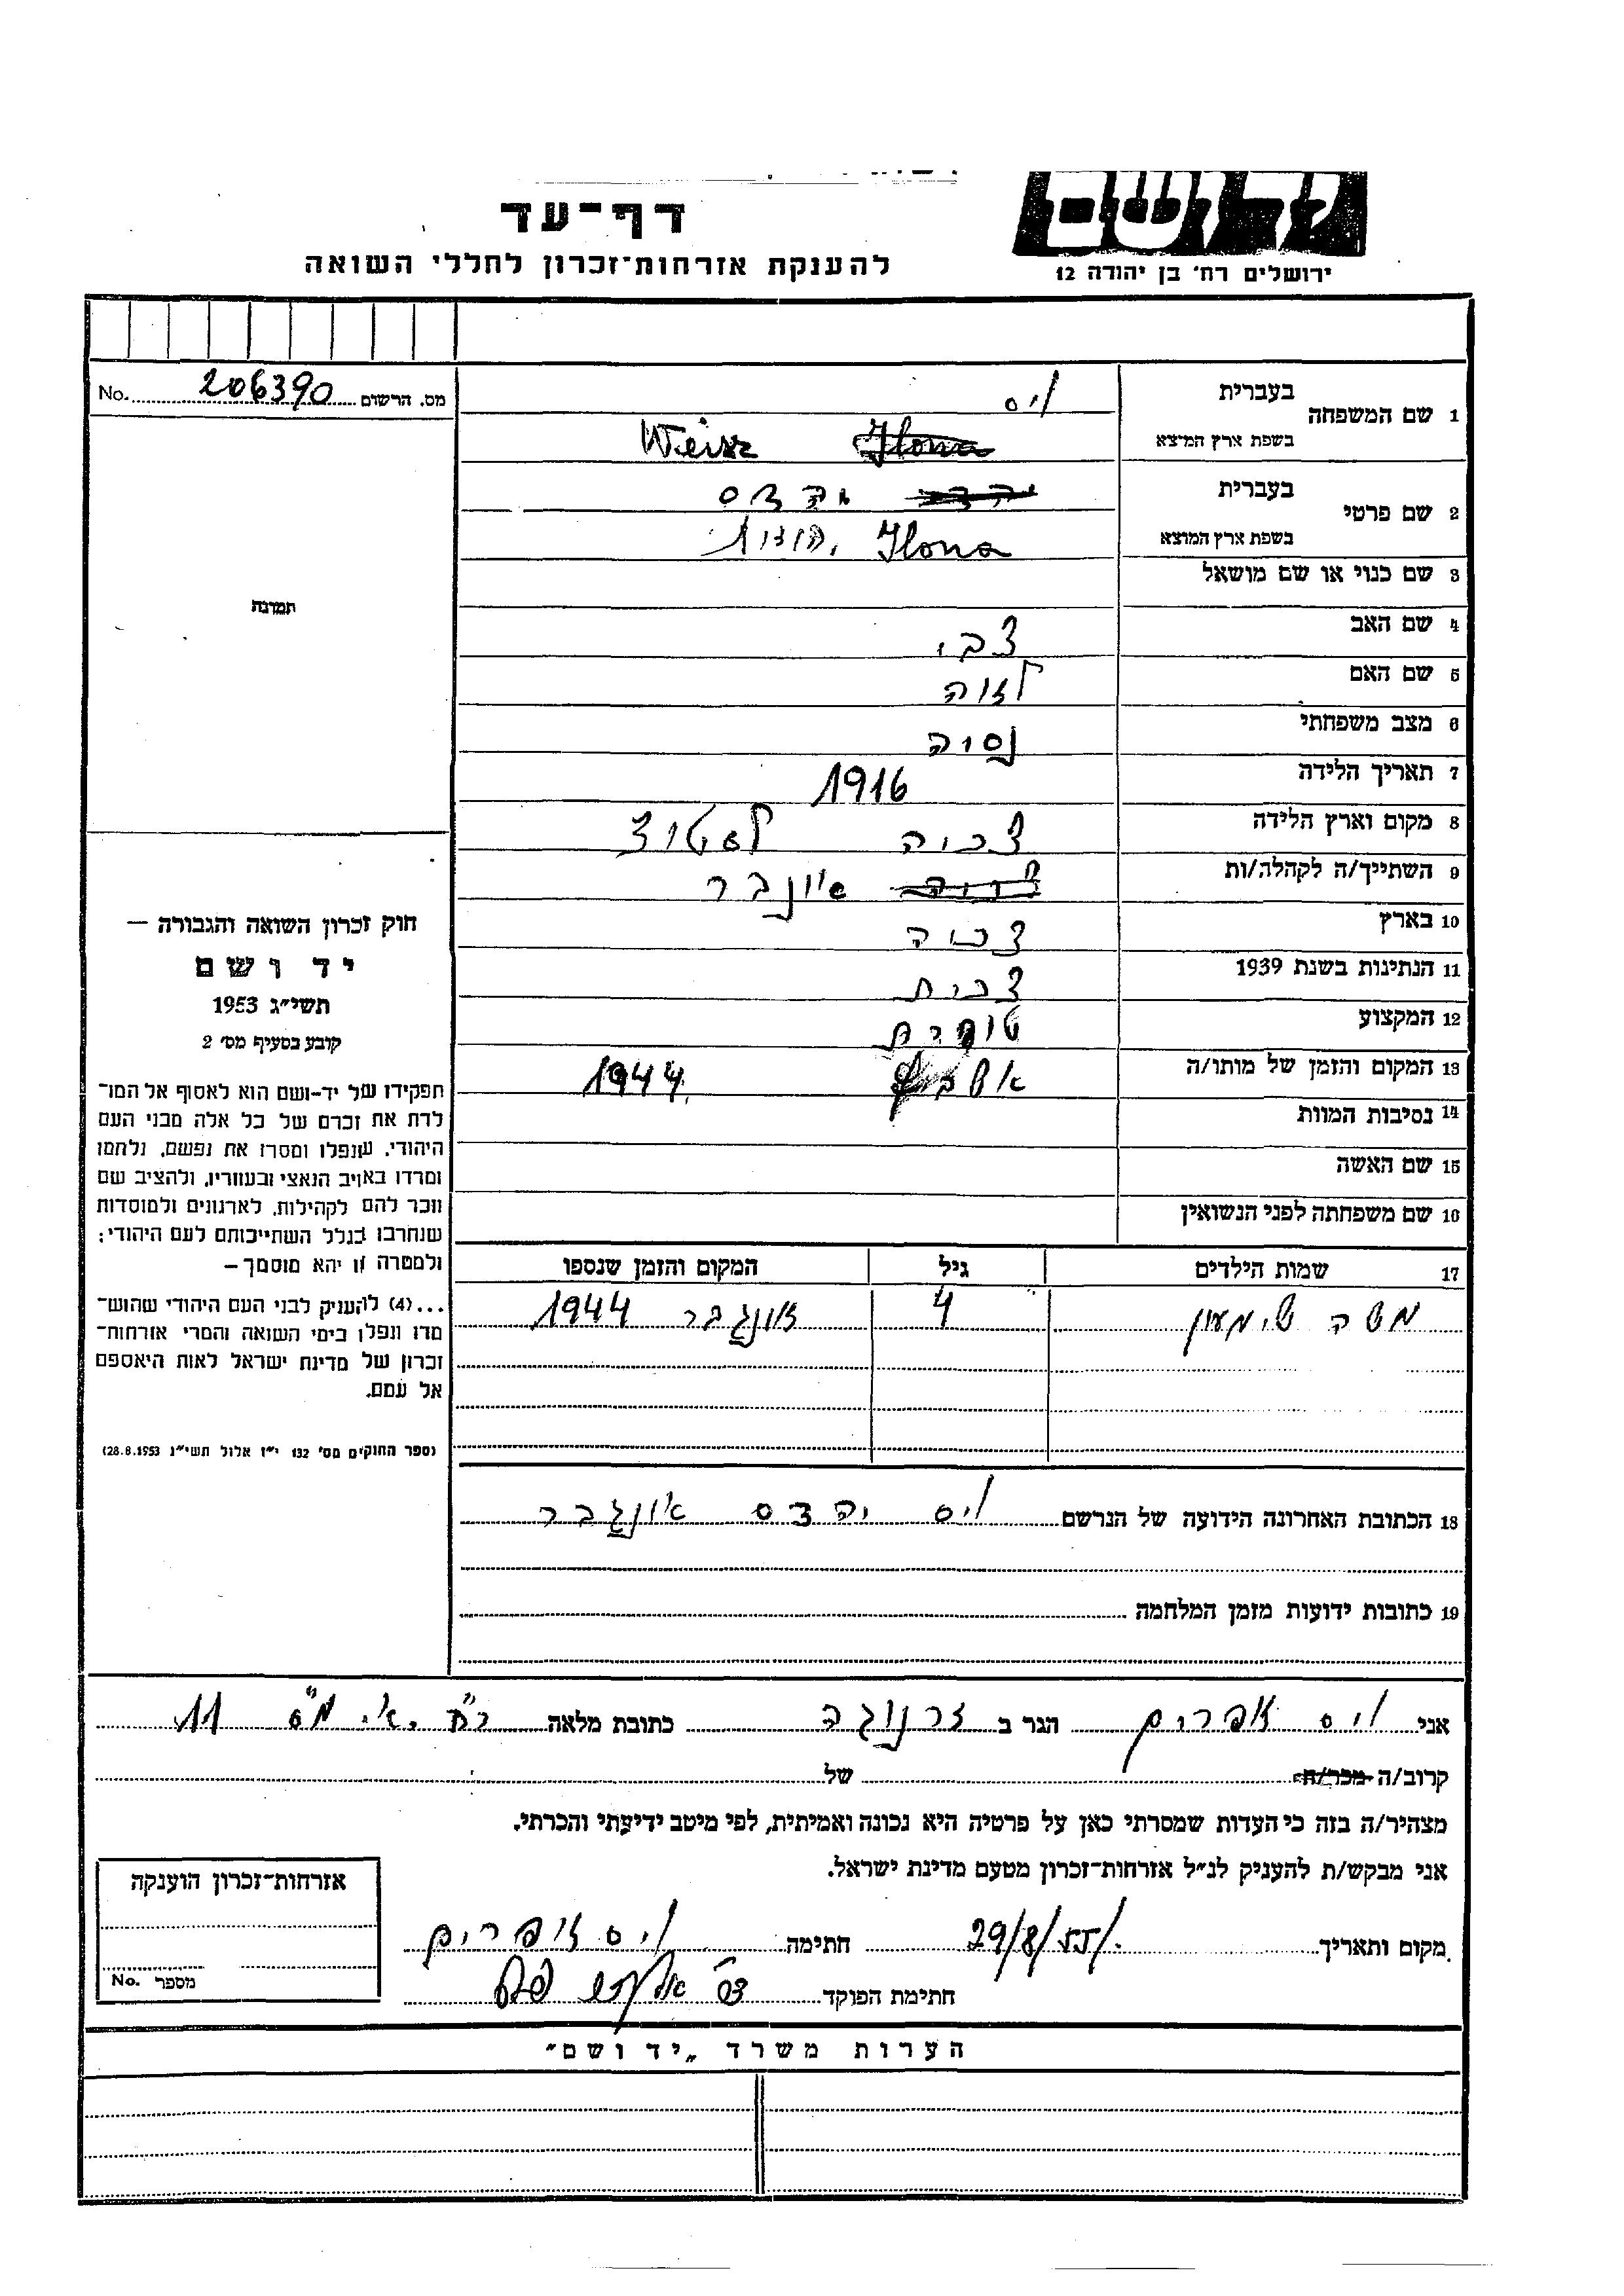 יד ושם
ירושלים רח' בן יהודה 12
דף-עד
להענקת אזרחות-זכרון לחללי השואה
מס. הרשום 206390 No.
1 שם המשפחה בעברית ויס
בשפת ארץ המוצא Weisz
2 שם פרטי בעברית
בשפת ארץ המוצא Ilona יהודית
3 שם כנוי או שם מושאל
4 שם האב צבי
5 שם האם לאה
6 מצב משפחתי נשוה
7 תאריך הלידה 1916
8 מקום וארץ הלידה צכיה
9 השתייך/ה לקהלה/ות אונגבר
10 בארץ צכיה
11 הנתינות בשנת 1939 צכית
12 המקצוע
13 המקום והזמן של מותו/ה 1944
14 נסיבות המוות
15 שם האשה
16 שם משפחתה לפני הנשואין
17 שמות הילדים גיל המקום והזמן שנספו
משה שימעון 4 אונגבר 1944
18 הכתובת האחרונה הידועה של הנרשם ויס אונגבר
19 כתובות ידועות מזמן המלחמה
תמונה
חוק זכרון השואה והגבורה —
יד ושם
תשי"ג 1953
קובע בסעיף מס' 2
תפקידו של יד-ושם הוא לאסוף אל המו-
לדת את זכרם של כל אלה מבני העם
היהודי, שנפלו ומסרו את נפשם, נלחמו
ומרדו באויב הנאצי ובעוזריו, ולהציב שם
וזכר להם לקהילות, לארגונים ולמוסדות
שנחרבו בגלל השתייכותם לעם היהודי;
ולמטרה זו יהא מוסמך —
...(4) להעניק לבני העם היהודי שהוש-
מדו ונפלו בימי השואה והמרי אזרחות-
זכרון של מדינת ישראל לאות היאספם
אל עמם.
(ספר החוקים מס' 132 י"ז אלול תשי"ג 28.8.1953)
אני ויס אפרים הגר ב זרנוגה כתובת מלאה 11
קרוב/ה מכר/ה של
מצהיר/ה בזה כי העדות שמסרתי כאן על פרטיה היא נכונה ואמיתית, לפי מיטב ידיעתי והכרתי.
אני מבקש/ת להעניק לנ"ל אזרחות-זכרון מטעם מדינת ישראל.
מקום ותאריך 29/8/55 חתימה ויס אפרים
חתימת הפוקד
אזרחות-זכרון הוענקה
מספר No.
הערות משרד „יד ושם"